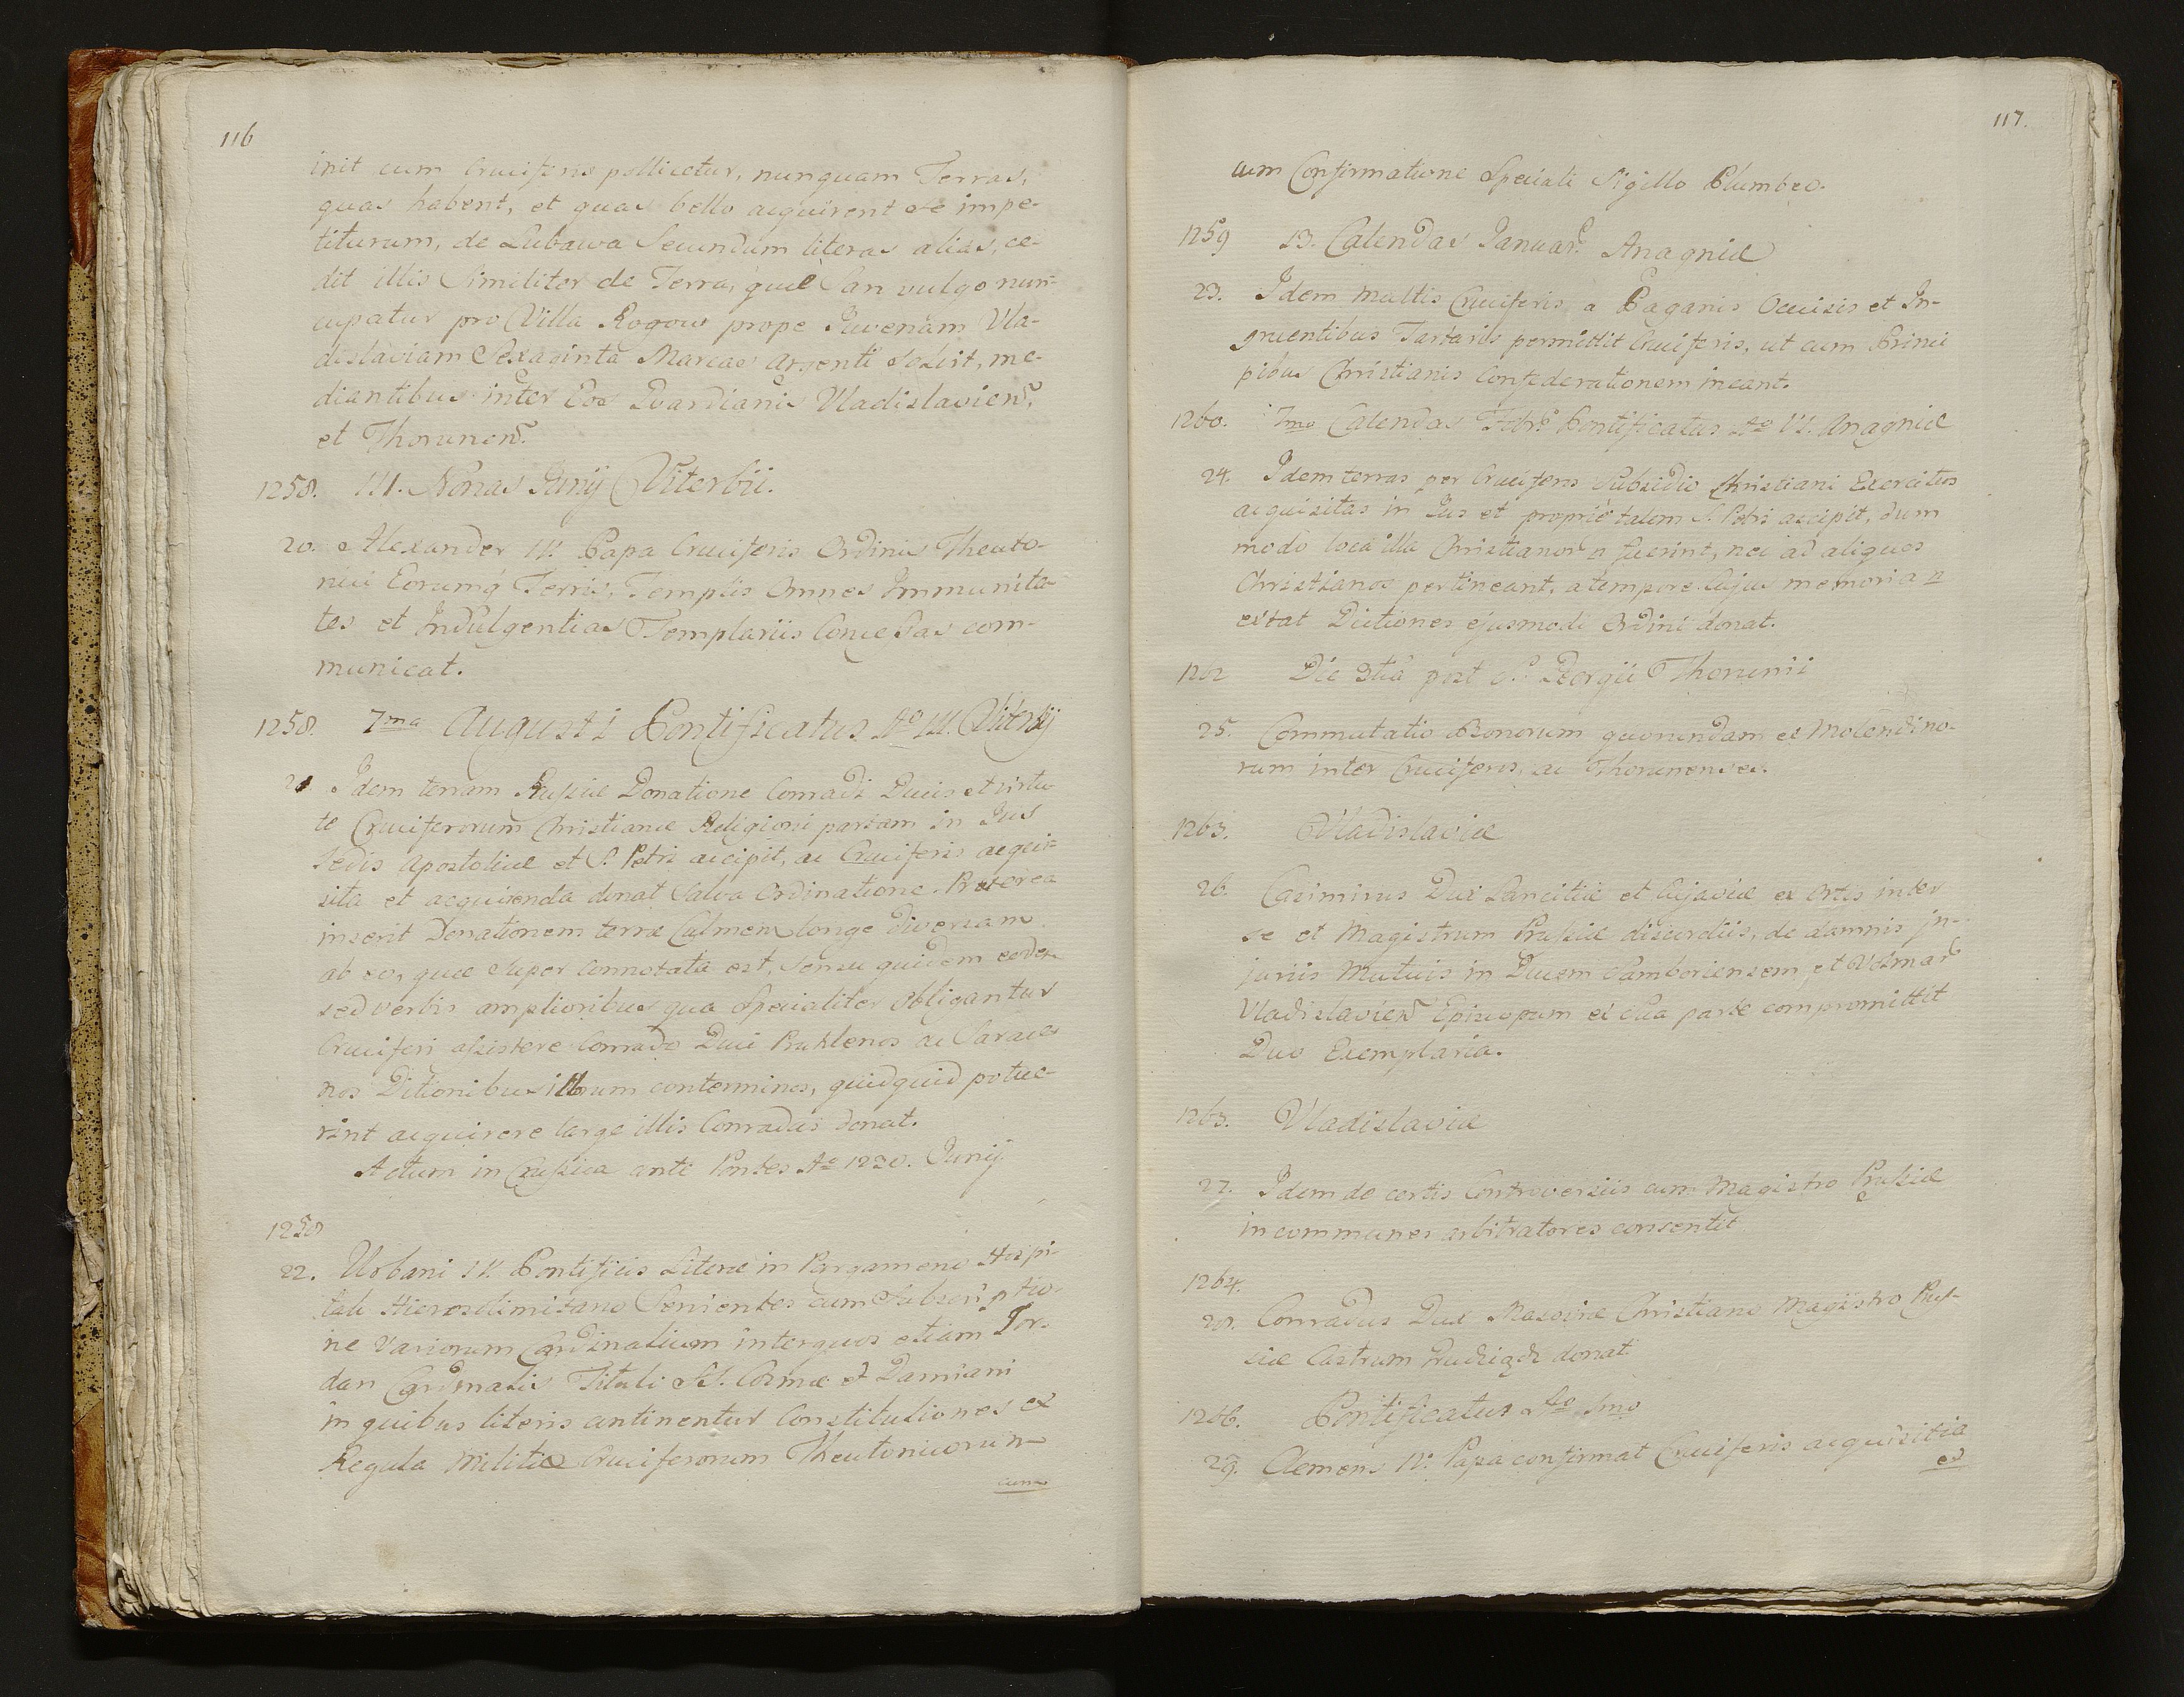 116
init cum Cruciferis pollicetur, nunquam Terras,
quas habent, et quas bello acquirent se impe-
titurum, de Lubawa Secundum literas alias, ce-
dit illis Similiter de Terra, quæ San vulgo nun-
cupatur pro Villa Rogow prope Juvenam Vla-
dislaviam Sexaginta Marcas argenti solvit, me-
diantibus inter Eos Gvardianis Vladislavien.
et Thorunen.
1258. III. Nonas Junij Viterbii.
20. Alexander IV. Papa Cruciferis Ordinis Theuto-
nici Eorumq Terris, Templis Omnes Immunita-
tes et Indulgentias Templariis Concessas com-
municat.
1258. 7ma Augusti Pontificatus Ao III. Viterbij
21 Idem terram Prussiæ Donatione Conradi Ducis et virtu-
te Cruciferorum Christianæ Religioni partam in Jus
Sedis Apostolicæ et S. Petri accipit, ac Cruciferis acqui-
sita et acquirenda donat Salva Ordinatione. Præterea
inserit Donationem terræ Culmen longe diversam
ab eo, quæ super connotata est, sensu quidem eodem
sed verbis amplioribus qua Specialiter obligantur
Cruciferi assistere Conrado Duci Pruthenos ac Sarace-
nos Ditionibus illorum conterminos, quidquid potue-
rint acquirere large illis Conradus donat.
Actum in Crussvica ante Pontes Ao 1230. Junij
1258
22. Urbani IV Pontificis Literæ in Pargameno Hospi-
tali Hierosolimitano Servientes cum Subscriptio-
ne Variorum Cardinalium inter quos etiam Jor-
dan Cardinalis Tituli SS. Cosmæ et Damiani
in quibus literis continentur Constitutiones et
Regula Militiæ Cruciferorum Theutonicorum
cum
117.
cum Confirmatione Speciali Sigillo Plumbeo.
1259 13. Calendas Januar. Anagniæ
23. Idem Multis Cruciferis a Paganis Occisis et In-
gruentibus Tartaris permittit Cruciferis, ut cum Princi
pibus Christianis Confæderationem ineant.
1260. 7mo Calendas Febr. Pontificatus Ao VI. Anagniæ
24. Idem terras per Cruciferos Subsidio Christiani Exercitus
acquisitas in Jus et proprietatem S. Petri accipit, dum
modo loca illa Christianor n fuerint, nec ad aliquos
Christianos pertineant, a tempore Cujus memoria n
extat Dictiones ejusmodi Ordini donat.
1262 Die 3tia post S. Georgii Thorunii
25. Commutatio Bonorum quorundam et Molendino-
rum inter Cruciferos, ac Thorunenses.
1263. Vladislaviæ
26. Casimirus Dux Lancitiæ et Cujaviæ ex Ortis inter
se et Magistrum Prussiæ discordiis, de damnis In-
juriis Mutuis in Ducem Samboriensem, et Volmar
Vladislavien Episcopum ex sua parte compromittit
Duo Exemplaria.
1263. Vladislaviæ
27. Idem de certis Controversiis cum Magistro Prussiæ
in communes arbitratores consentit
1264.
28. Conradus Dux Masoviæ Christiano Magistro Prus-
siæ Castrum donat.
1266. Pontificatus Ao Imo
29. Clemens IV. Papa confirmat Cruciferis acquisitia
et